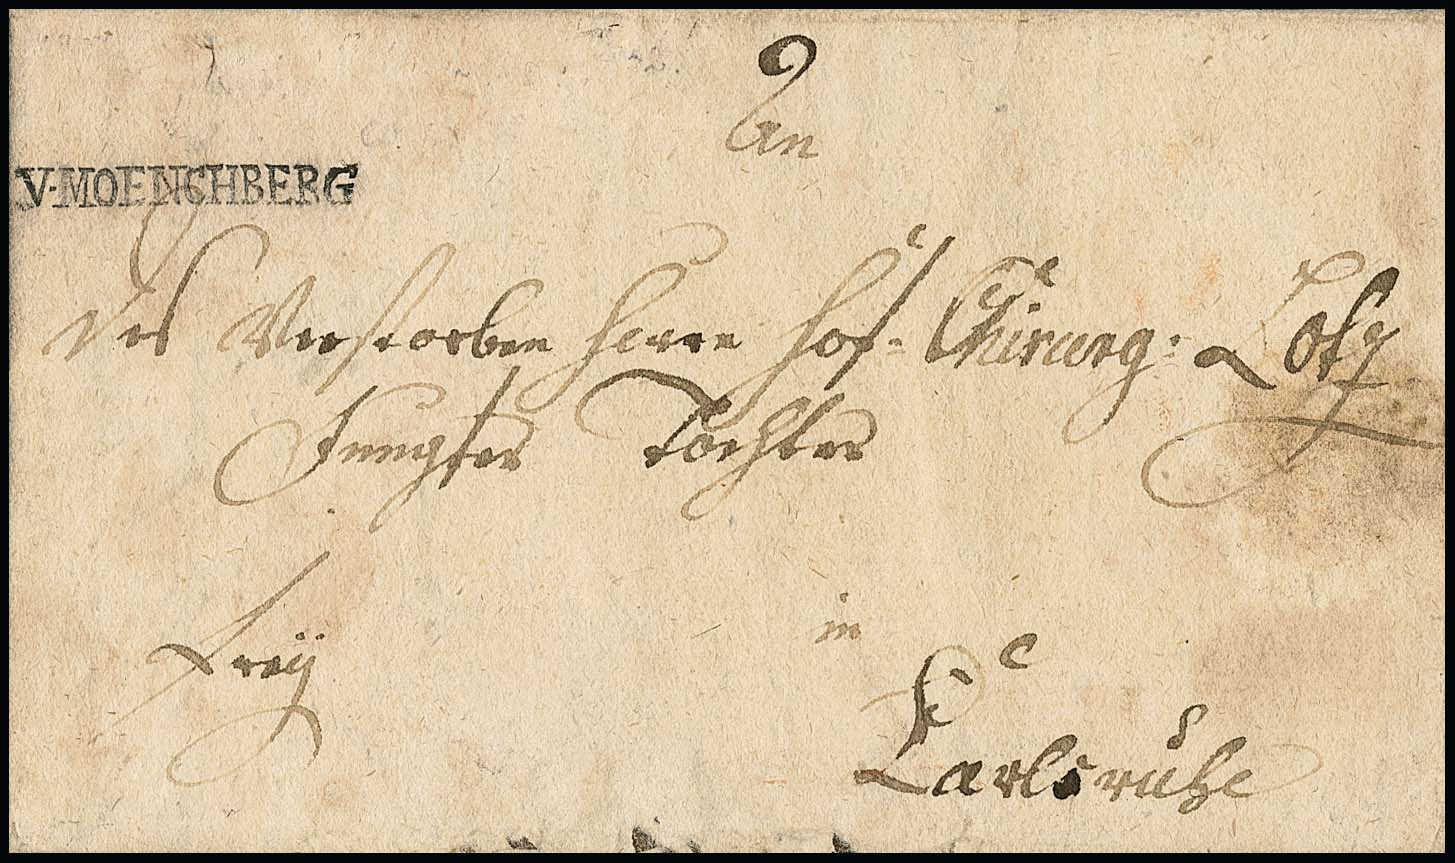 An
V·MOENCHBERG
Des Verstorben Herrn Hof-Chirurg:
Jungfer Tochter
in
Frey
Carlsruhe